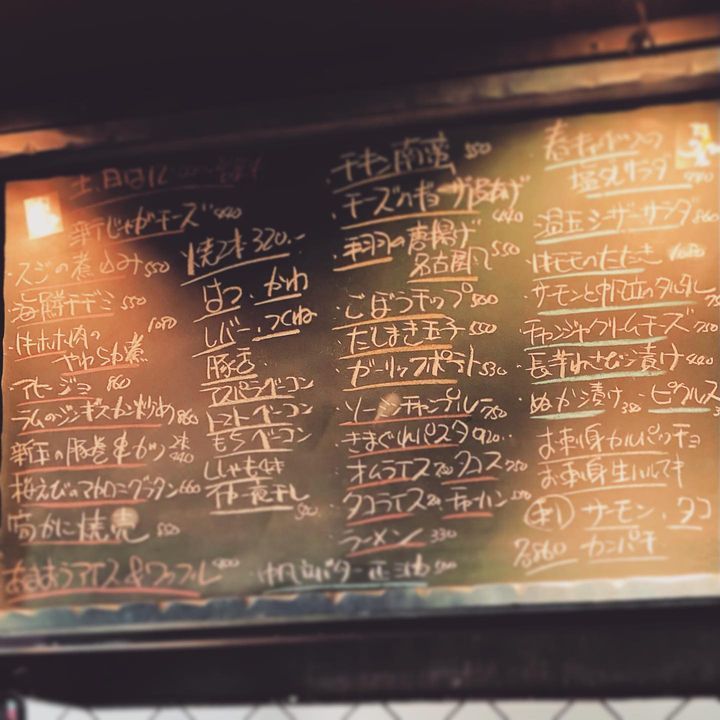 土、日は12
新じゃがチーズ 440
・スジの煮込み 550
・海鮮チヂミ 550
・牛ホホ肉の 1080
やわらか煮
・アヒージョ 860
ラムのジンギスカン炒め 860
新玉の豚巻串カツ 2本 440
桜えびのマカロニグラタン 660
紅ずわいかに焼売
あまおうアイス&ワッフル
焼き2本 320.-
はつ・かわ
レバー・つくね
豚舌
アスパラベーコン
トマトベーコン
もちベーコン
ししゃも
一夜干し
・帆立バター 500
・チキン南蛮 550
・チーズのギョーザ皮あげ 440
・手羽の唐揚げ 550
名古屋
・ごぼうチップ 500
・だしまき玉子 550
・ガーリックポテト 530
・ソーミンチャンプルー 750
・きまぐれパスタ 920
・オムライス 750 タコス 750
・タコライス チャーハン
・ラーメン 330
春キャベツの
塩ダレサラダ
・温玉シーザーサラダ 860
・はもものたたき 1080
・サーモンと帆立のタルタル
・チャンジャクリームチーズ 750
・長芋わさび漬け 440
・ぬか漬け 350 ・ピクルス
お刺身カルパッチョ
お刺身生ハルマキ
サーモン、タコ
860 カンパチ